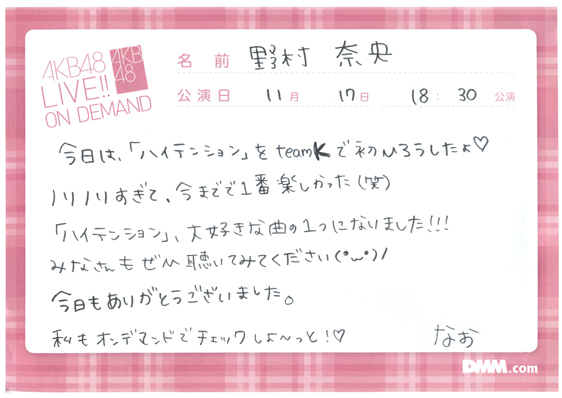 AKB48
LIVE!!
ON DEMAND
AKB
48
名前 野村 奈央
公演日 11月 17日 18:30 公演
今日は、「ハイテンション」をteamKで初ひろうしたよ♡
ノリノリすぎて、今までで1番楽しかった(笑)
「ハイテンション」、大好きな曲の1つになりました!!!
みなさんもぜひ聴いてみてください(°ω°)/
今日もありがとうございました。
私もオンデマンドでチェックしよ〜っと!♡
なお
DMM.com